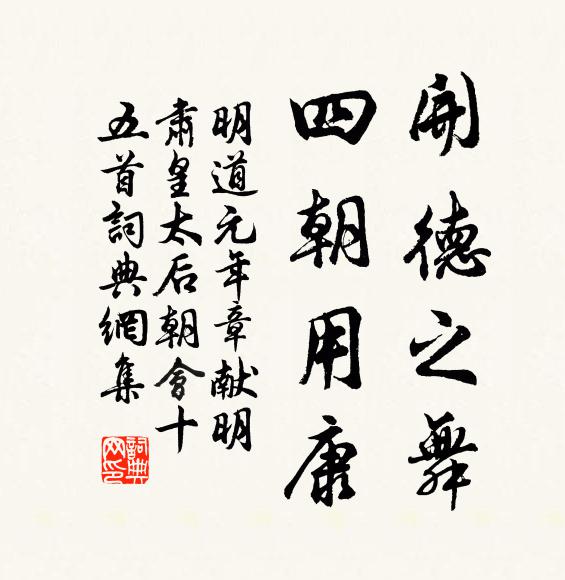 開德之舞
四朝用康
明道元年章献明
肅皇太后朝會十
五首詞典網集
詞典網印